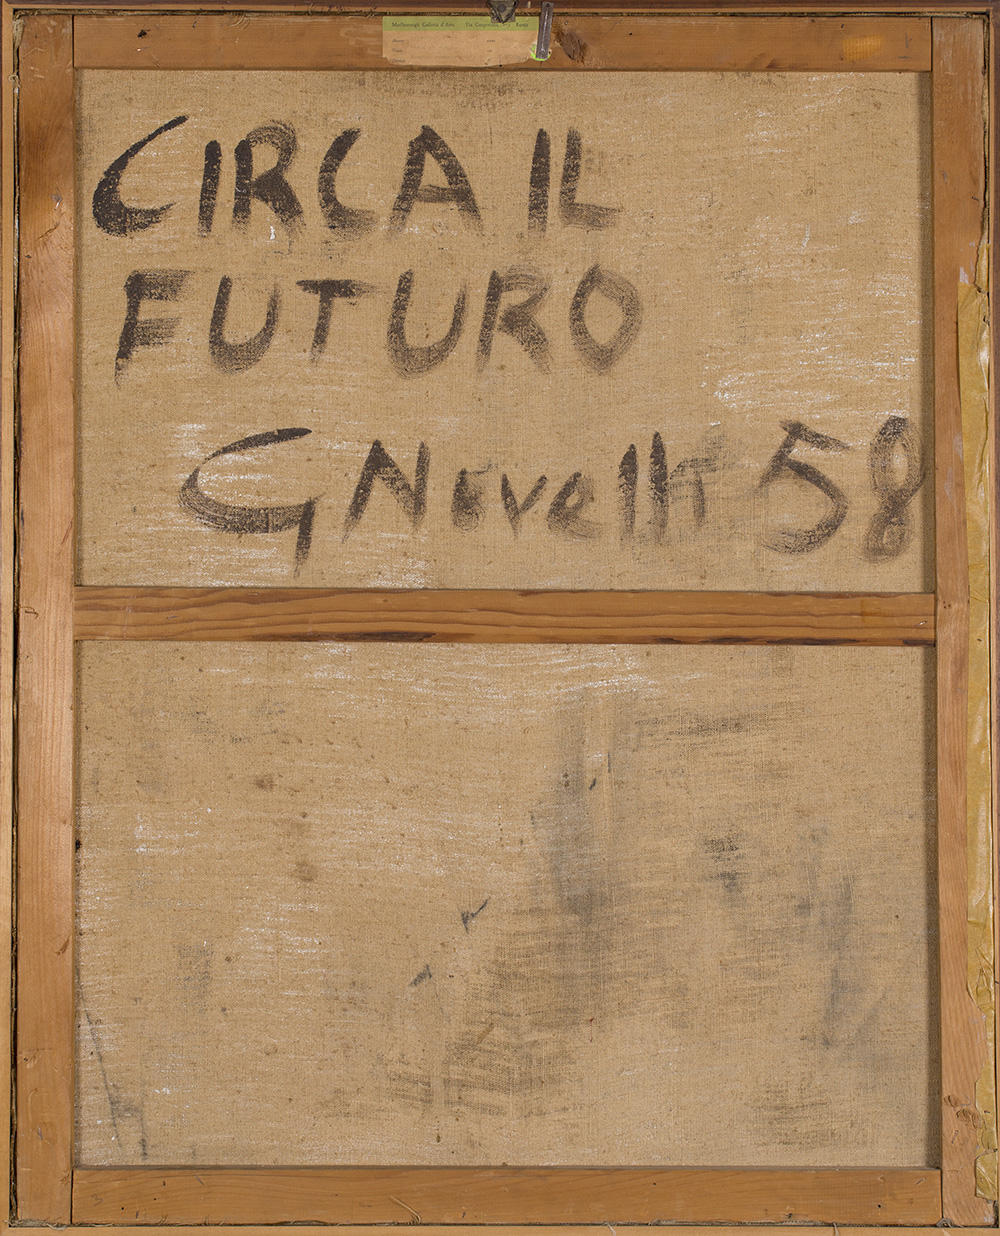 Marlborough Galleria d'Arte Via Gregoriana 5 Roma
CIRCA IL
FUTURO
G Novelli 58